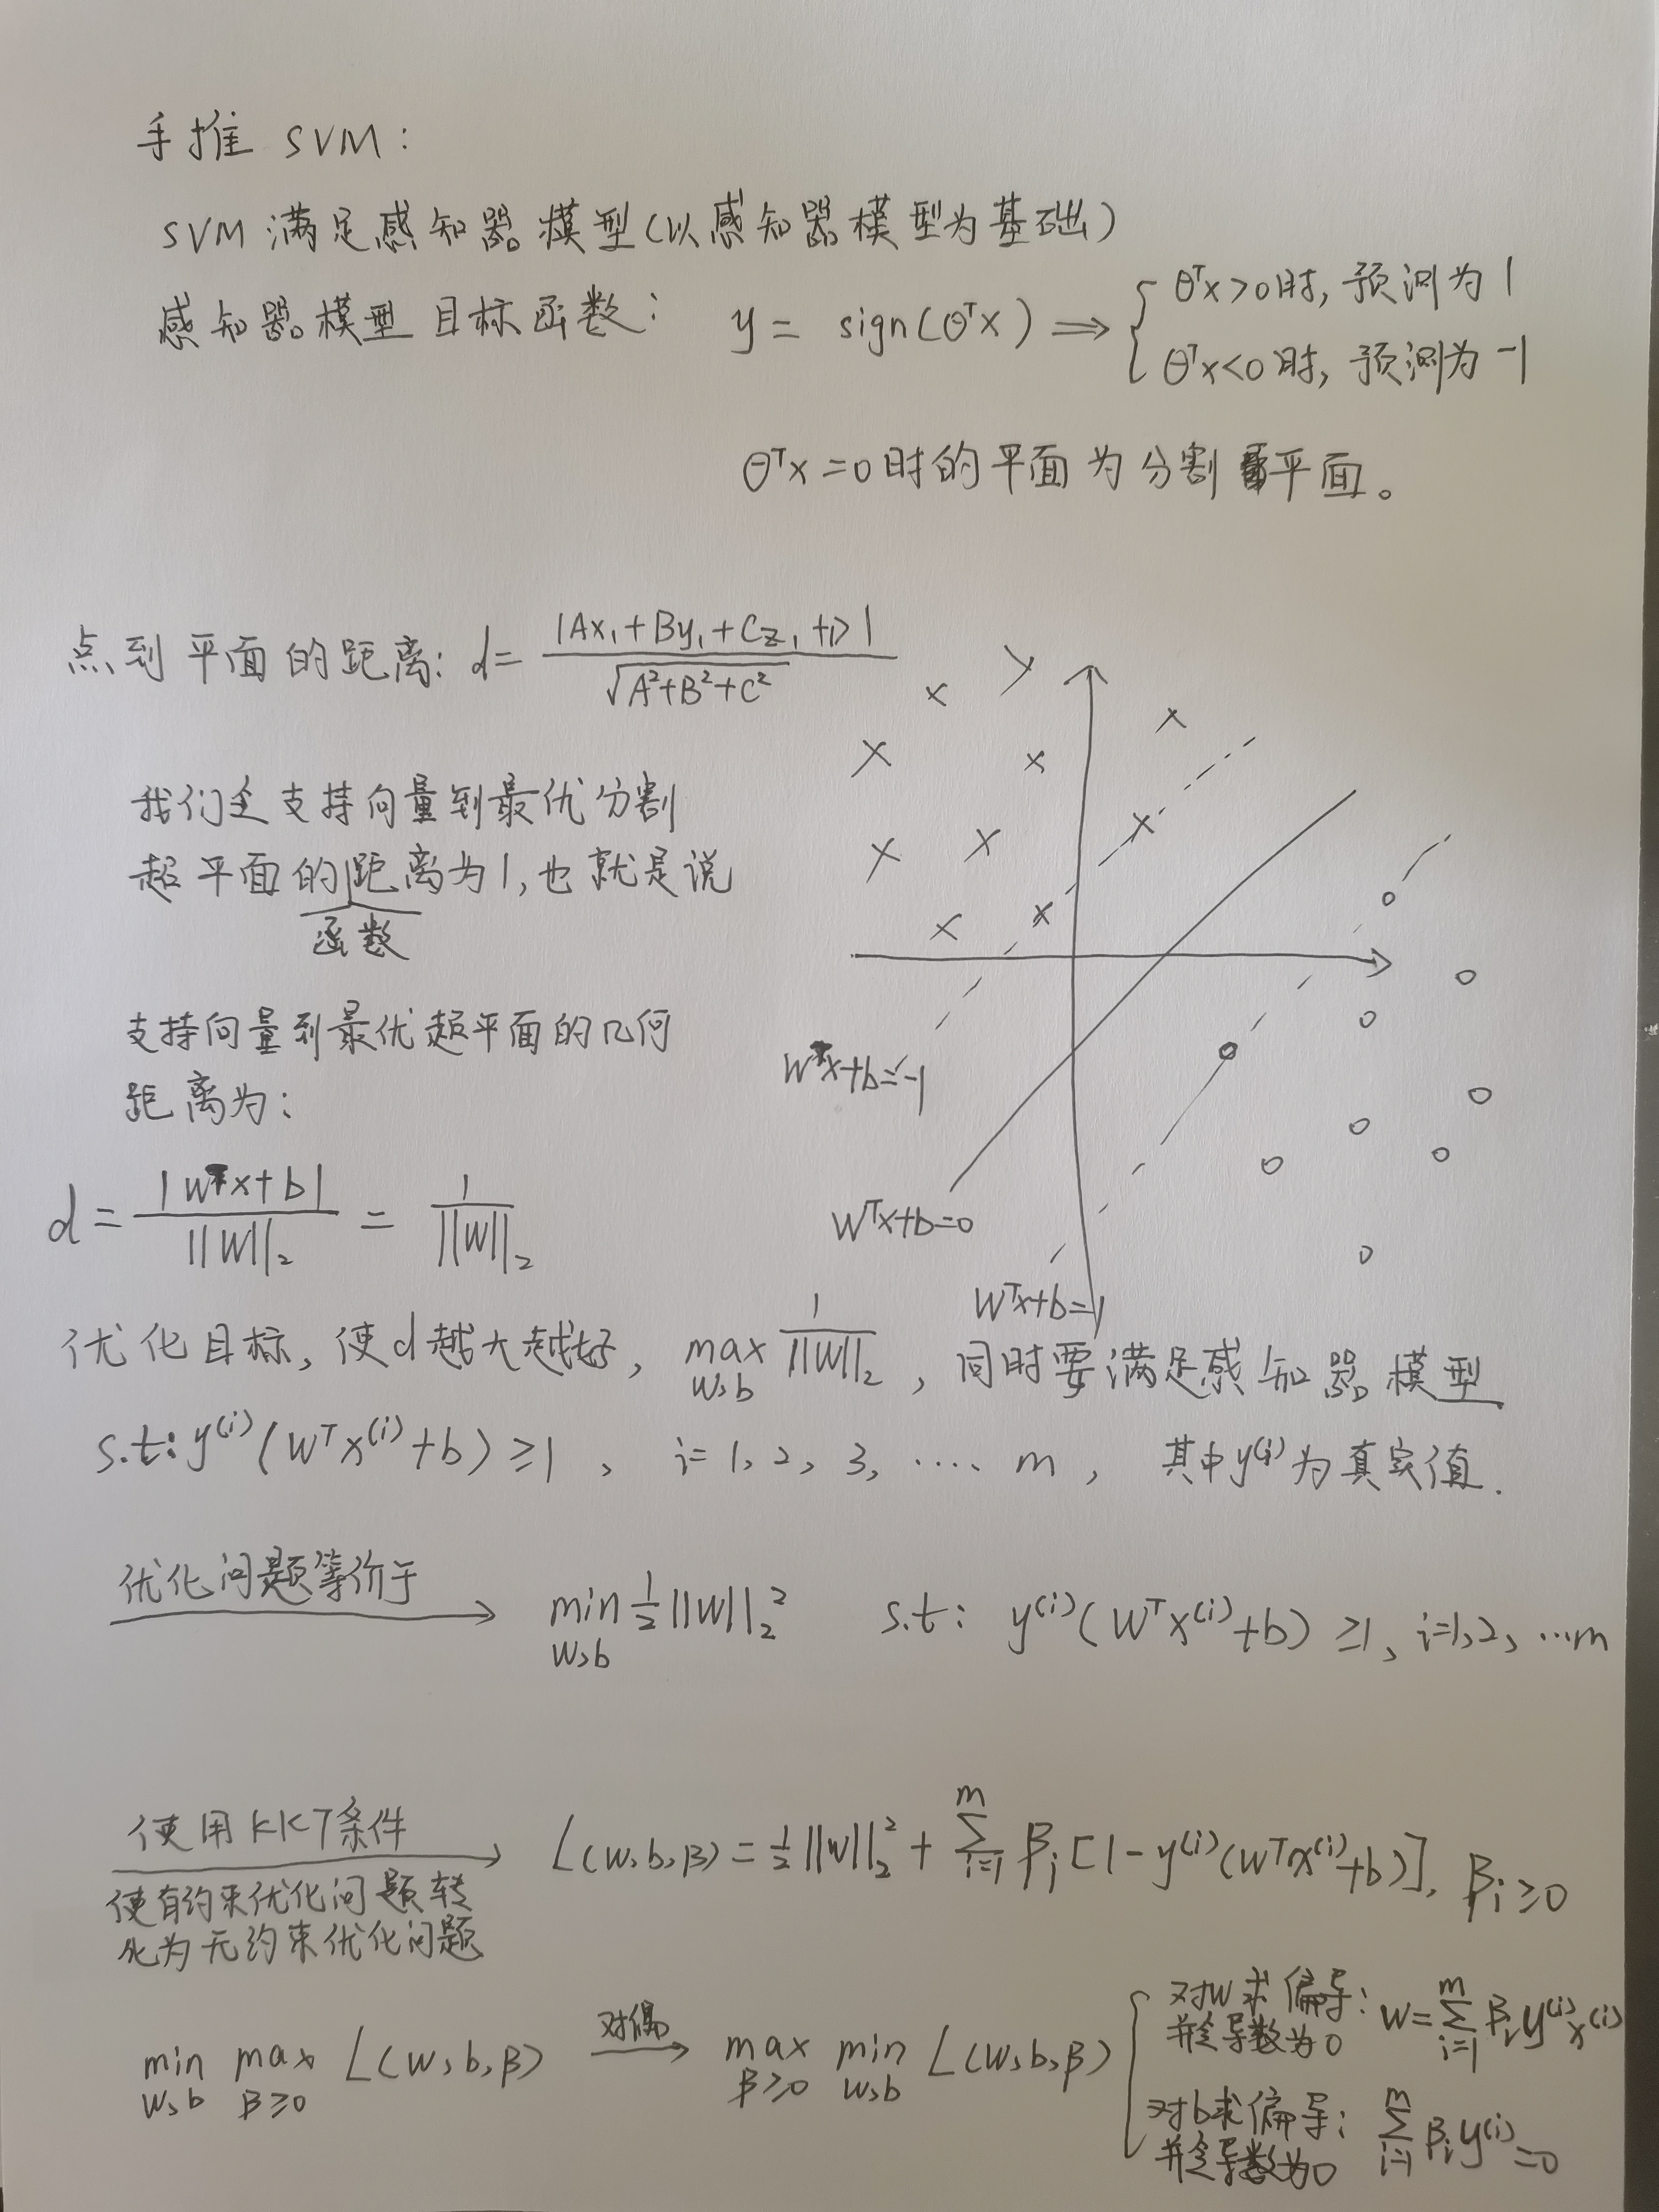 手推 SVM:
SVM 满足感知器模型(以感知器模型为基础)
感知器模型目标函数: y = sign(θᵀx) ⟹ { θᵀx>0时, 预测为 1
θᵀx<0时, 预测为 -1
θᵀx=0时的平面为分割平面。
点到平面的距离: d = |Ax₁+By₁+Cz₁+D| / √(A²+B²+C²)
我们令支持向量到最优分割
超平面的距离为1, 也就是说
函数
支持向量到最优超平面的几何
距离为:
d = |wᵀx+b| / ||w||₂ = 1 / ||w||₂
wᵀx+b=-1
wᵀx+b=0
wᵀx+b=1
优化目标, 使d越大越好, max_{w,b} 1/||w||₂ , 同时要满足感知器模型
s.t: y⁽ⁱ⁾(wᵀx⁽ⁱ⁾+b) ≥1 , i=1, 2, 3, .... m , 其中y⁽ⁱ⁾为真实值.
优化问题等价于 → min_{w,b} ½||w||₂² s.t: y⁽ⁱ⁾(wᵀx⁽ⁱ⁾+b) ≥1, i=1,2, …m
使用KKT条件 → L(w,b,β) = ½||w||₂² + ∑_{i=1}^{m} βᵢ[1-y⁽ⁱ⁾(wᵀx⁽ⁱ⁾+b)], βᵢ≥0
使有约束优化问题转
化为无约束优化问题
min_{w,b} max_{β≥0} L(w,b,β) 对偶 → max_{β≥0} min_{w,b} L(w,b,β) { 对w求偏导: w=∑_{i=1}^{m} βᵢy⁽ⁱ⁾x⁽ⁱ⁾
并令导数为0
对b求偏导: ∑_{i=1}^{m} βᵢy⁽ⁱ⁾=0
并令导数为0